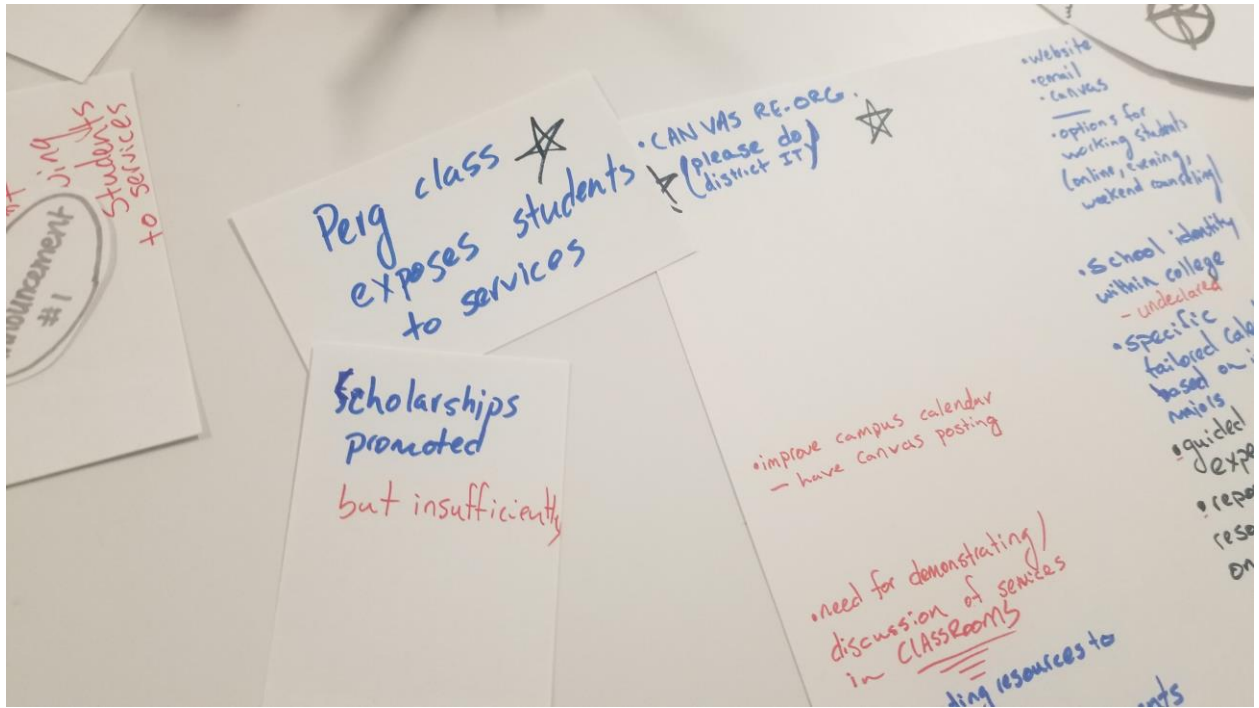 jing
Students
to services
#1
class
Perg
exposes students
to services
Scholarships
promoted
but insufficiently
•CANVAS RE-ORG.
(please do
district IT)
•website
•email
•canvas
•options for
working students
(online, evening,
weekend counseling)
•School identity
within college
- undeclared
•specific
tailored
based on
majors
•guided
•improve campus calendar
- have canvas posting
•need for demonstrating/
discussion of services
in ClASSROOMS
resources to